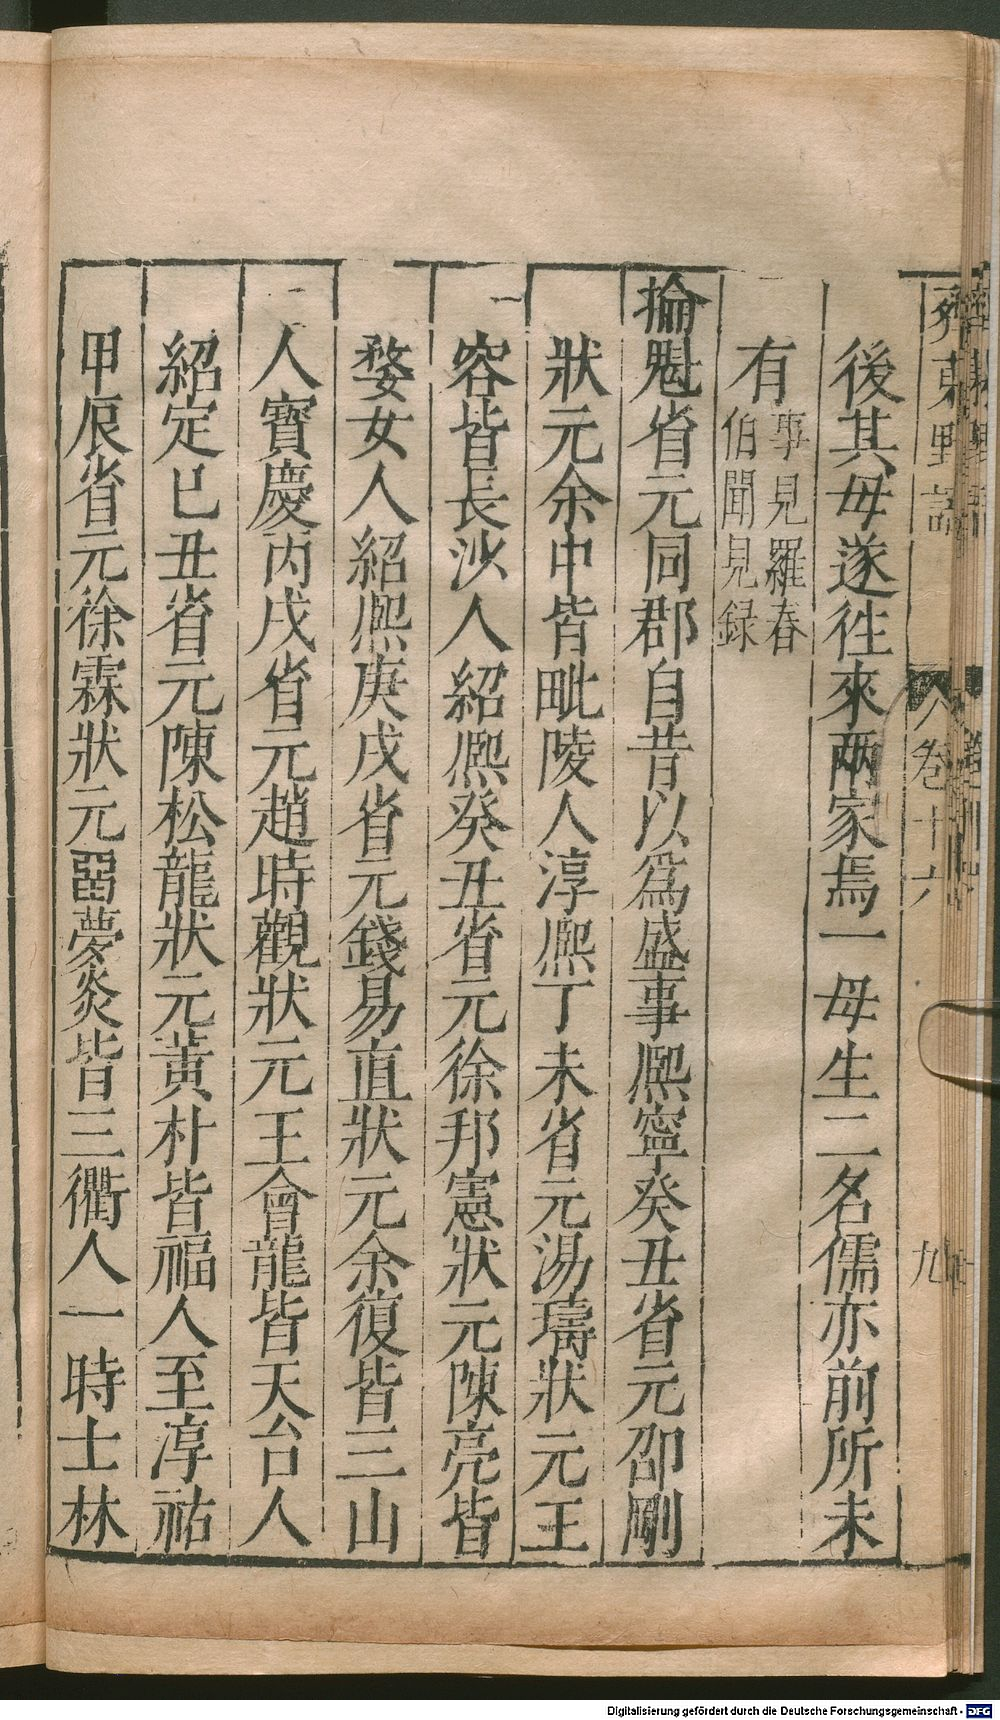 齊東野語　卷十六　九
後其母遂往來兩家焉一母生二名儒亦前所未
有事見羅春
伯聞見録
掄魁省元同郡自昔以爲盛事熈寧癸丑省元邵剛
狀元余中皆毗陵人淳熈丁未省元湯璹狀元王
容皆長沙人紹熈癸丑省元徐邦憲狀元陳亮皆
婺女人紹熈庚戌省元錢易直狀元余復皆三山
人寶慶丙戌省元趙時觀狀元王會龍皆天台人
紹定已丑省元陳松龍狀元黃朴皆福人至淳祐
甲辰省元徐霖狀元夢炎皆三衢人一時士林
Digitalisierung gefördert durch die Deutsche Forschungsgemeinschaft - DFG